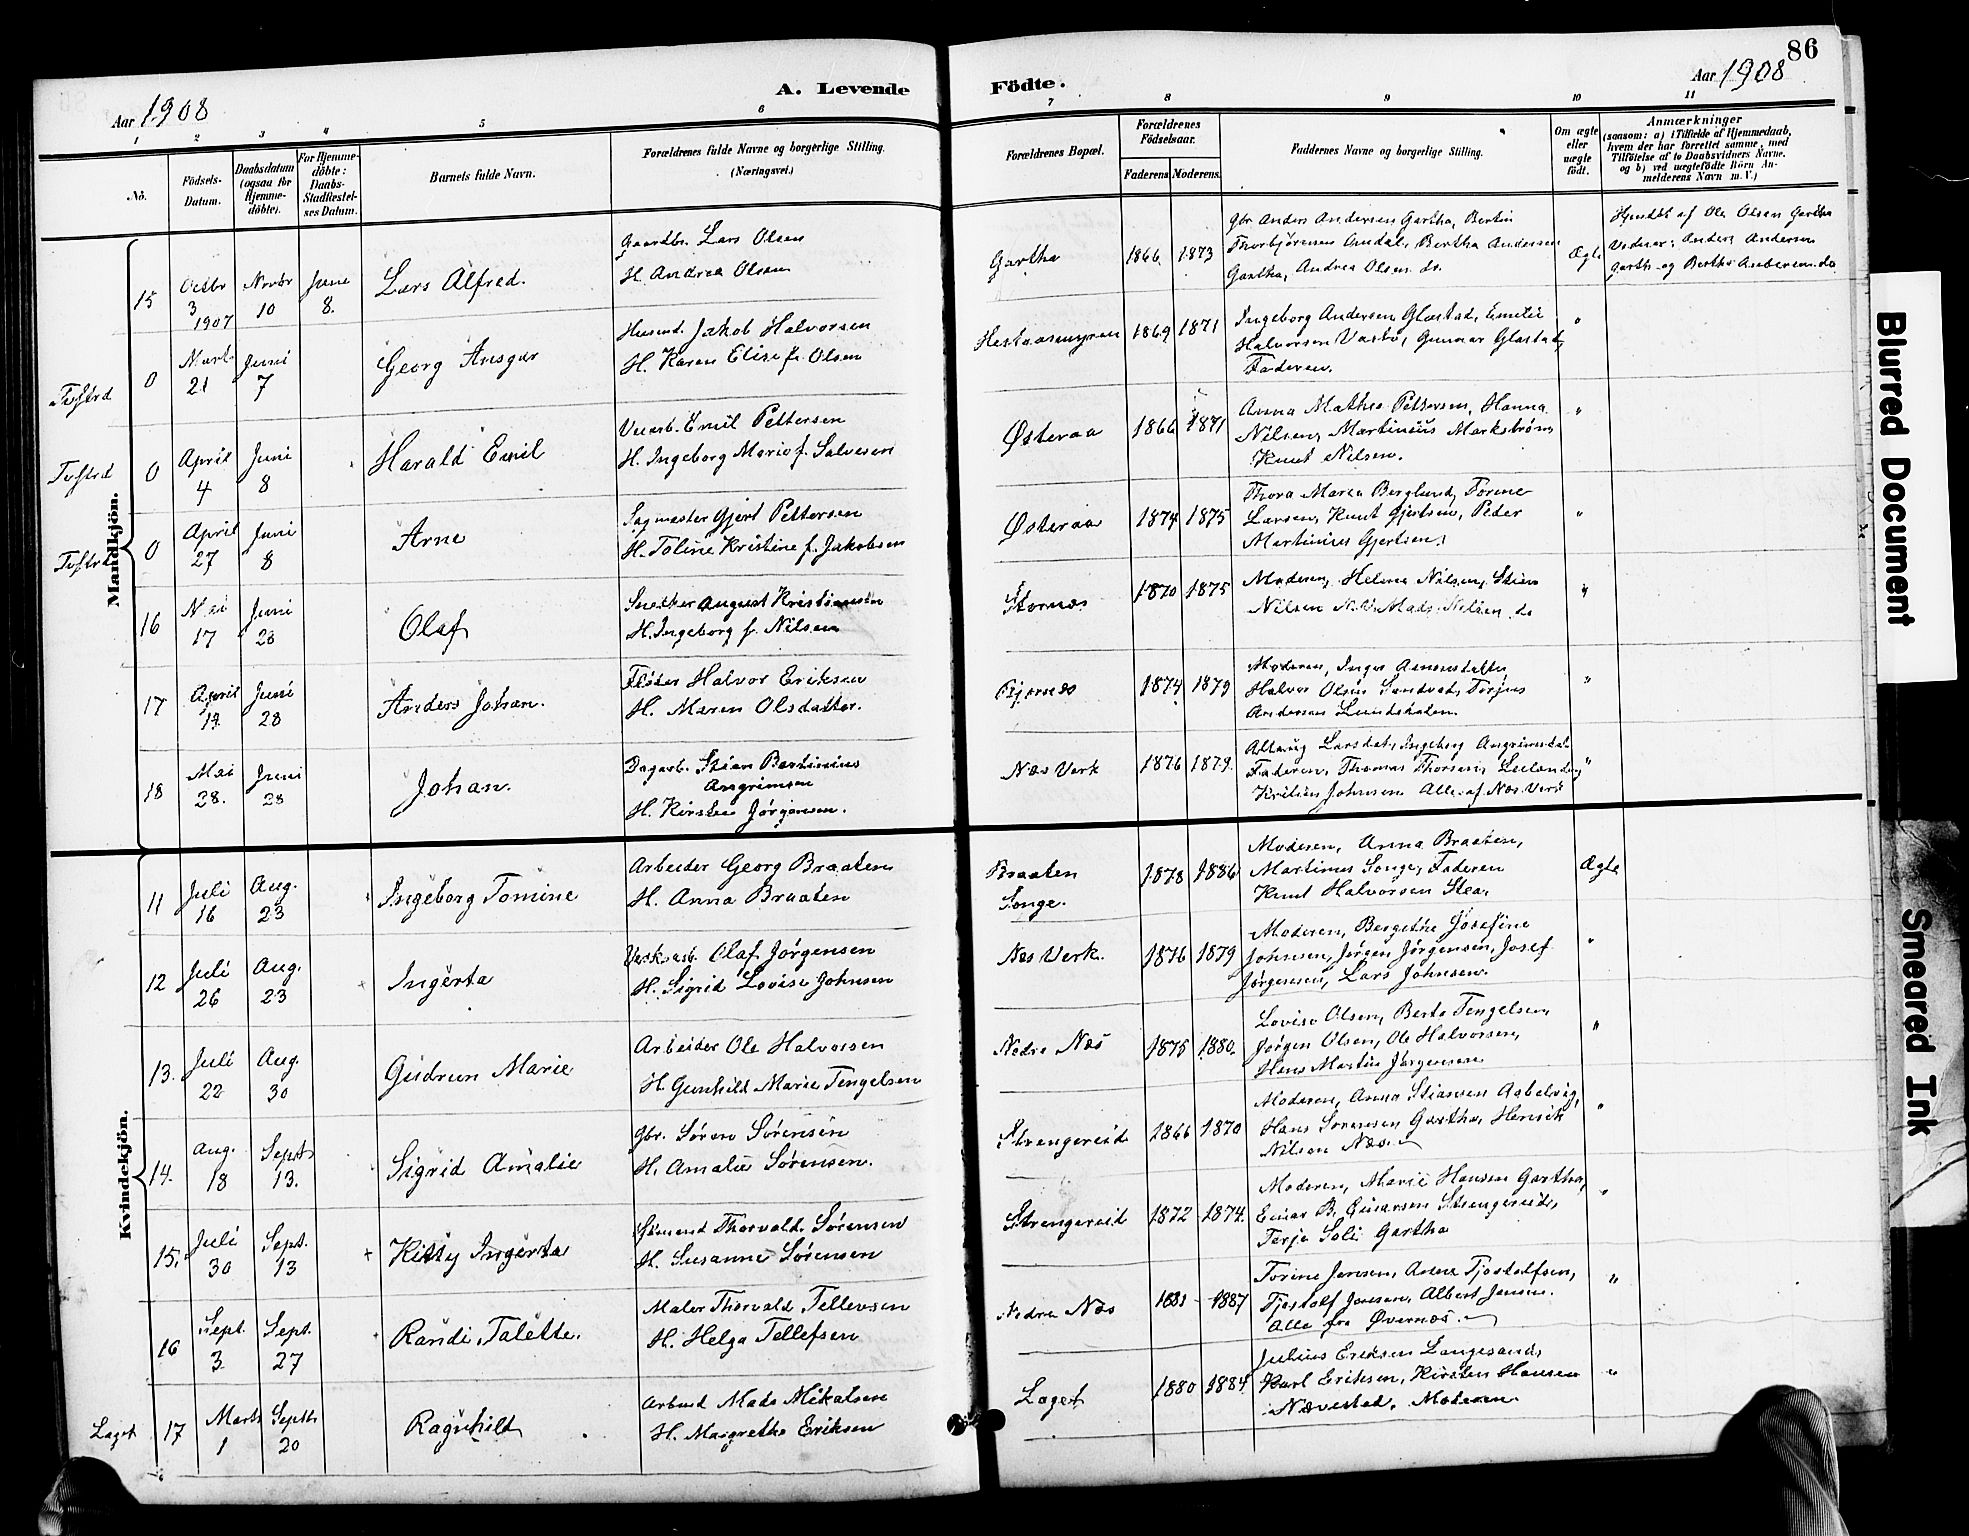 86
Aar 1908
A. Levende
Födte.
Aar 1908
1 2 3 4 5 6 7 8 9 10 11
No.
Födsels-Datum.
Daabsdatum (ogsaa for Hjemme-döbte).
For Hjemme-döbte: Daabs-Stadfestel-ses Datum.
Barnets fulde Navn.
Forældrenes fulde Navne og borgerlige Stilling.
(Næringsvei.)
Forældrenes Bopæl.
Forældrenes Födselsaar.
Faderens Moderens.
Faddernes Navne og borgerlige Stilling.
Om ægte eller uægte födt.
Anmærkninger
(saasom: a) i Tilfælde af Hjemmedaab,
hvem der har forrettet samme, med
Tilföielse af to Daabsvidners Navne,
og b) ved uægtefödte Börn An-
melderens Navn m. V.)
Mandkjön.
15 Octbr 3 1907 Novbr 10 June 8. Lars Alfred.
Gaardbr. Lars Olsen
H. Andrea Olsen
Gartha 1866 1873
Gbr Anders Andersen Gartha, Bertin
Thorbjörnsen Amdal, Bertha Andersen
Gartha, Andrea Olsen do.
Ægte
Hjmdbt af Ole Olsen Gartha
Vidner: Anders Andersen
Garth. og Bertha Andersen do
Tvstrd 0 Mart. 21 Juni 7 Georg Ansgar
Husmd. Jakob Halvorsen
H. Karen Elise f. Olsen
Hestaasmyren 1869 1871
Ingeborg Andersen Glastad, Emilie
Halvorsen Vasbö, Gunnar Glastad,
Faderen.
"
Tvstrd 0 April 4 Juni 8 Harald Emil
Emil Pettersen
H. Ingeborg Marie f. Salvesen
Østeraa 1866 1871
Anna Mathea Pettersen, Hanna
Nilsen, Martinius Markström,
Knut Nilsen.
"
Tvstrd 0 April 27 Juni 8 Arne
Sagmester Gjert Pettersen
H. Toline Kristine f. Jakobsen
Østeraa 1874 1875
Thora Maria Berglund, Torine
Larsen, Knut Gjertsen, Peder
Martinius Gjertsen.
"
16 Mai 17 Juni 28 Olaf
Snedker August Kristiansen
H. Ingeborg f. Nilsen
Stornæs 1870 1875
Moderen, Helene Nilsen, Stian
Nilsen N.V. Mads Nilsen do
"
17 April 19. Juni 28 Anders Johan.
Halvor Eriksen
H. Maren Olsdatter.
1874 1879
Moderen, Inger
Halvor Olsen Sandvad, Terjus
Andersen
"
18 Mai 28. Juni 28 Johan.
Dagarb. Stian Bertinius
Asgrimsen
H. Kirsten Jörgensen.
Næs Verk 1876 1879.
Larsdat., Ingeborg Asgrimsdat.
Faderen, Thomas Thorsen,
Kristian Johnsen Alle af Næs Verk
"
Kvindekjön.
11 Juli 16 Aug. 23 Ingeborg Tomine
Arbeider Georg Braaten
H. Anna Braaten
Braaten
Songe. 1878 1886
Moderen, Anna Braaten,
Martinus Songe, Faderen
Knut Halvorsen Stea,
Ægte
12 Juli 26 Aug. 23 Ingerta
Verksarb. Olaf Jörgensen
H. Sigrid Lovise Johnsen
Næs Verk. 1876 1879
Moderen, Bergithe Josefine
Johnsen, Jörgen Jörgensen, Josef
Jörgensen, Lars Johnsen.
"
13. Juli 22 Aug. 30 Gudrun Marie
Arbeider Ole Halvorsen
H. Gunhild Marie Tengelsen
Nedre Næs 1875 1880.
Lovise Olsen, Berte Tengelsen,
Jörgen Olsen, Ole Halvorsen,
Hans Martin Jörgensen
"
14. Aug. 18 Septr 13. Sigrid Amalie
Gbr. Sören Sörensen
H. Amalie Sörensen.
Strengereid 1866 1870
Moderen, Anna Stiansen Agbelvig,
Hans Sörensen Gartha, Henrik
Nilsen Næs.
"
15. Juli 30 Sept. 13 Kitty Ingerta
Sömand Thorvald Sörensen
H. Susanne Sörensen
Strengereid 1872 1874.
Moderen, Marie Hansen Gartha,
Einar B. Einarsen Strengereid,
Terje Soli Gartha
"
16 Sept. 3 Sept. 27 Randi Talette.
Maler Thorvald Tellevsen
H. Helga Tellefsen
Nedre Næs 1881 1887
Torine Jensen, Anne Tjostolfsen,
Tjostolf Jensen, Albert Jensen.
Alle fra Övernæs.
"
Laget 17 Marts 1 Septbr 20 Ragnhild
Arbmd Mads Mikalsen
H. Margrethe Eriksen
Laget 1880 1884
Julius Eriksen Langesand,
Karl Eriksen, Kirsten Hansen
Nævestad, Moderen.
"
Blurred Document
Smeared Ink